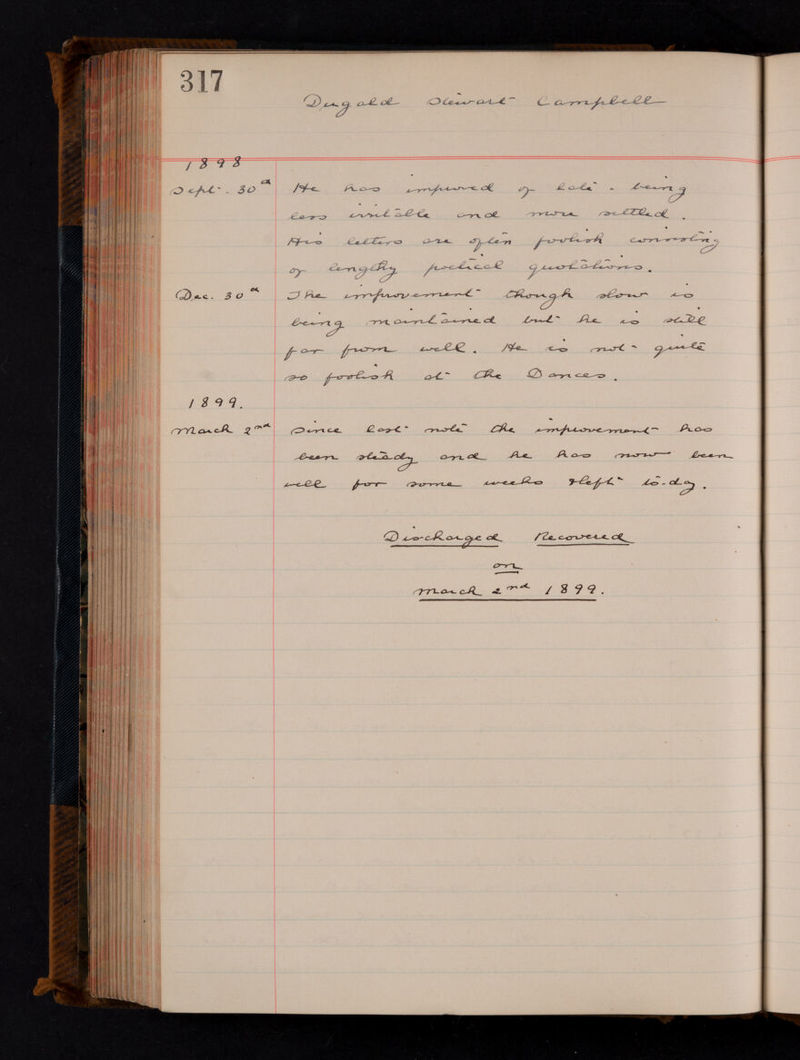 317
Dugald Stewart Campbell
1898
Sept. 30th He has improved of late - being
less irritable and more settled.
His letters are often foolish consisting
of lengthy poetical quotations.
Dec. 30th The improvement though slow is
being maintained but he is still
far from well. He is not quite
so foolish at the Dances.
1899.
March 2nd Since last note the improvement has
been steady and he has now been
well for some weeks & left to-day.
Discharged Recovered
on
March 2nd 1899.